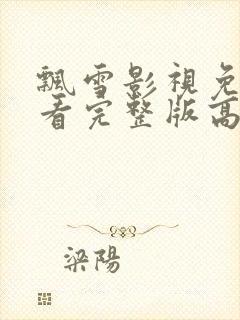 飄雪影視免
看完整版高
梁陽